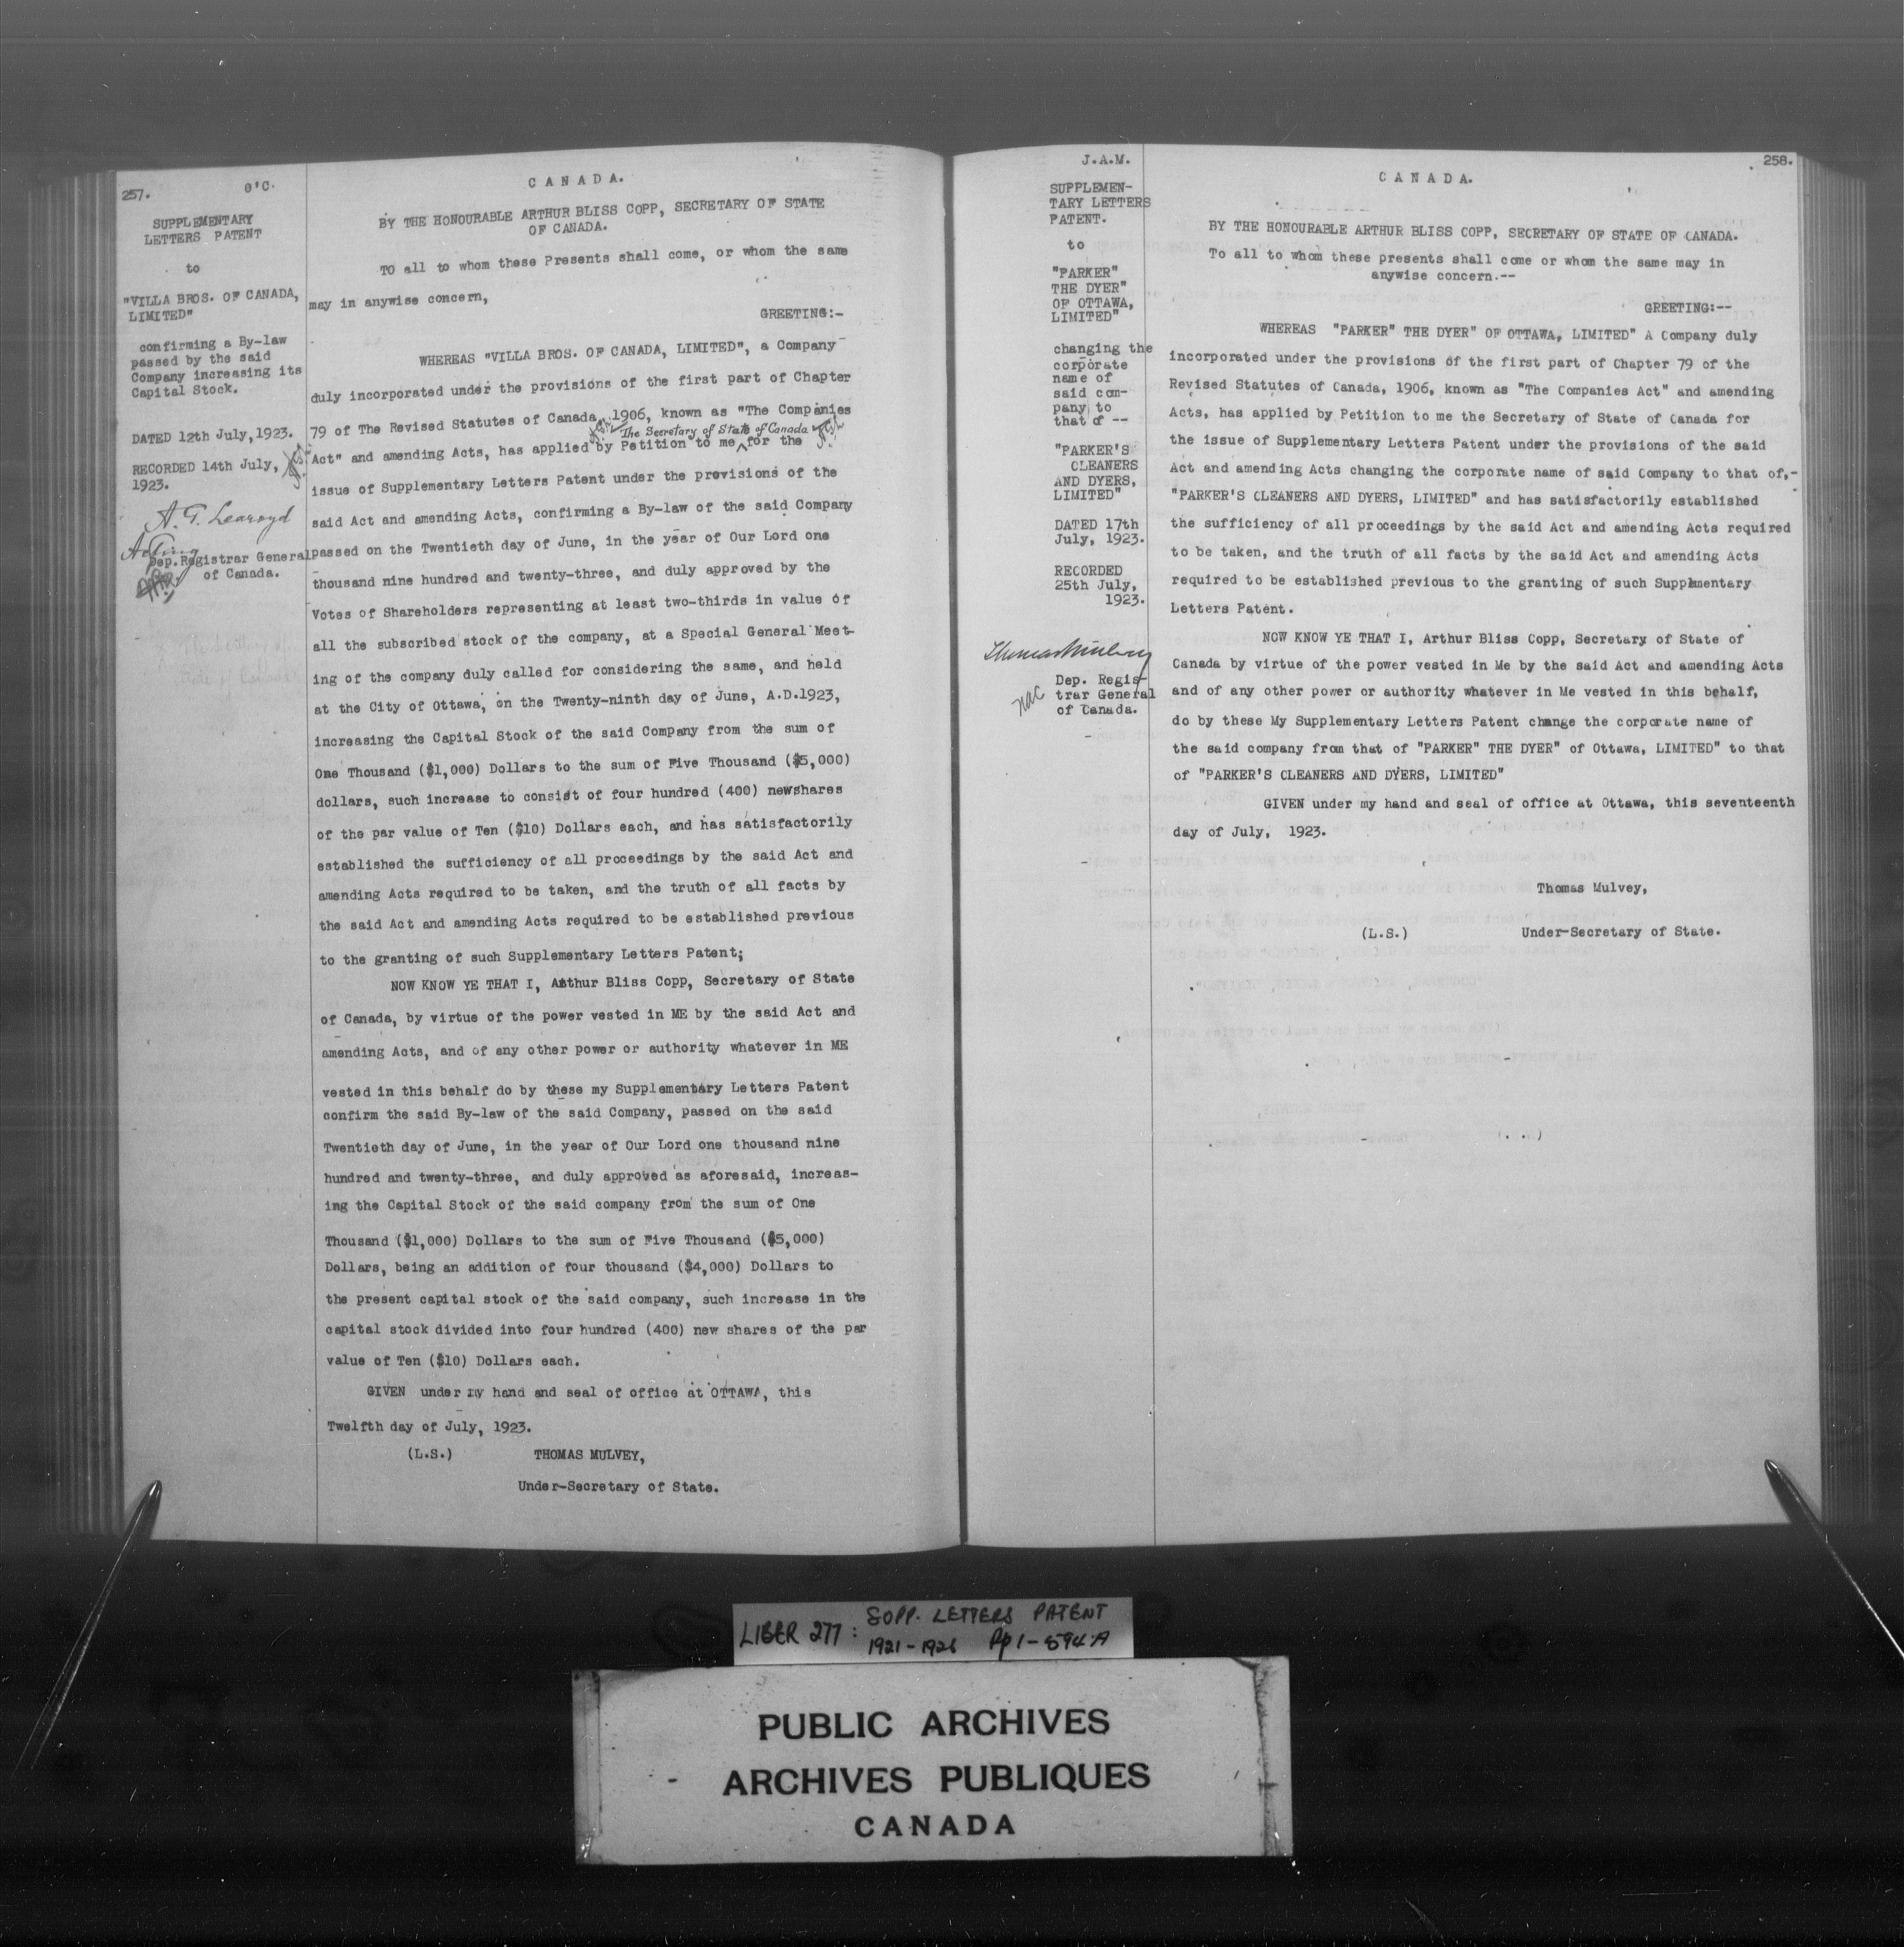 257. O'C.
SUPPLEMENTARY
LETTERS PATENT
to
"VILLA BROS. OF CANADA,
LIMITED"
confirming a By-law
passed by the said
Company increasing its
Capital Stock.
DATED 12th July, 1923.
RECORDED 14th July,
1923.
A. G. Learoyd
Acting
Dep. Registrar General
of Canada.
CANADA.
BY THE HONOURABLE ARTHUR BLISS COPP, SECRETARY OF STATE
OF CANADA.
TO all to whom these Presents shall come, or whom the same
may in anywise concern,
GREETING:-
WHEREAS "VILLA BROS. OF CANADA, LIMITED", a Company
duly incorporated under the provisions of the first part of Chapter
79 of The Revised Statutes of Canada, 1906, known as "The Companies
The Secretary of State of Canada
Act" and amending Acts, has applied by Petition to me ^ for the
issue of Supplementary Letters Patent under the provisions of the
said Act and amending Acts, confirming a By-law of the said Company
passed on the Twentieth day of June, in the year of Our Lord one
thousand nine hundred and twenty-three, and duly approved by the
Votes of Shareholders representing at least two-thirds in value of
all the subscribed stock of the company, at a Special General Meet-
ing of the company duly called for considering the same, and held
at the City of Ottawa, on the Twenty-ninth day of June, A.D.1923,
increasing the Capital Stock of the said Company from the sum of
One Thousand ($1,000) Dollars to the sum of Five Thousand ($5,000)
dollars, such increase to consist of four hundred (400) newshares
of the par value of Ten ($10) Dollars each, and has satisfactorily
established the sufficiency of all proceedings by the said Act and
amending Acts required to be taken, and the truth of all facts by
the said Act and amending Acts required to be established previous
to the granting of such Supplementary Letters Patent;
NOW KNOW YE THAT I, Arthur Bliss Copp, Secretary of State
of Canada, by virtue of the power vested in ME by the said Act and
amending Acts, and of any other power or authority whatever in ME
vested in this behalf do by these my Supplementary Letters Patent
confirm the said By-law of the said Company, passed on the said
Twentieth day of June, in the year of Our Lord one thousand nine
hundred and twenty-three, and duly approved as aforesaid, increas-
ing the Capital Stock of the said company from the sum of One
Thousand ($1,000) Dollars to the sum of Five Thousand ($5,000)
Dollars, being an addition of four thousand ($4,000) Dollars to
the present capital stock of the said company, such increase in the
capital stock divided into four hundred (400) new shares of the par
value of Ten ($10) Dollars each.
GIVEN under my hand and seal of office at OTTAWA, this
Twelfth day of July, 1923.
(L.S.) THOMAS MULVEY,
Under-Secretary of State.
J.A.M.
SUPPLEMEN-
TARY LETTERS
PATENT.
to
"PARKER"
THE DYER"
OF OTTAWA,
LIMITED"
changing the
corporate
name of
said com-
pany to
that of --
"PARKER'S
CLEANERS
AND DYERS,
LIMITED"
DATED 17th
July, 1923.
RECORDED
25th July,
1923.
Thomas Mulvey
Dep. Regis-
trar General
of Canada.
258.
CANADA.
BY THE HONOURABLE ARTHUR BLISS COPP, SECRETARY OF STATE OF CANADA.
To all to whom these presents shall come or whom the same may in
anywise concern.--
GREETING:--
WHEREAS "PARKER" THE DYER" OF OTTAWA, LIMITED" A Company duly
incorporated under the provisions of the first part of Chapter 79 of the
Revised Statutes of Canada, 1906, known as "The Companies Act" and amending
Acts, has applied by Petition to me the Secretary of State of Canada for
the issue of Supplementary Letters Patent under the provisions of the said
Act and amending Acts changing the corporate name of said Company to that of,-
"PARKER'S CLEANERS AND DYERS, LIMITED" and has satisfactorily established
the sufficiency of all proceedings by the said Act and amending Acts required
to be taken, and the truth of all facts by the said Act and amending Acts
required to be established previous to the granting of such Supplmentary
Letters Patent.
NOW KNOW YE THAT I, Arthur Bliss Copp, Secretary of State of
Canada by virtue of the power vested in Me by the said Act and amending Acts
and of any other power or authority whatever in Me vested in this behalf,
do by these My Supplementary Letters Patent change the corporate name of
the said company from that of "PARKER" THE DYER" of Ottawa, LIMITED" to that
of "PARKER'S CLEANERS AND DYERS, LIMITED"
GIVEN under my hand and seal of office at Ottawa, this seventeenth
day of July, 1923.
Thomas Mulvey,
(L.S.) Under-Secretary of State.
LIBER 277: SUPP. LETTERS PATENT
1921-1926 Pp 1-594A
PUBLIC ARCHIVES
ARCHIVES PUBLIQUES
CANADA